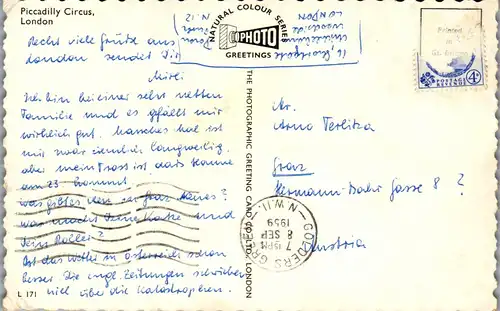 Piccadilly Circus,
London
Recht viele Grüße aus
London sendet Dir
Ich bin bei einer sehr netten
Familie und es gefällt mir
wirklich gut. Manches Mal ist
mir zwar ziemlich langweilig,
aber mein Trost ist, dass Hanne
am 23. kommt.
Was gibt es denn in Graz Neues?
Was macht Deine Katze und
Dein Roller?
Ist das Wetter in Österreich schon
besser. Die engl. Zeitungen schrieben
viel über die Katastrophen.
L 171
LONDON
N.12
NATURAL COLOUR SERIES
PHOTO
GREETINGS
THE PHOTOGRAPHIC GREETING CARD CO. LTD., LONDON
Printed
in
Gt. Britain
POSTAGE
REVENUE
4d
Hr.
Arno Terlitza
Graz
Hermann-Bahr Gasse 8 ?
Austria
GOLDERS GREEN
N.W.11.
7 15PM
8 SEP
1959